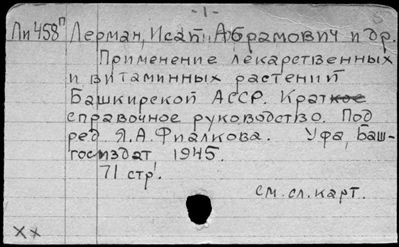 -1-
Ли458п Лерман, Исай Абрамович и др.
Применение лекарственных
и витаминных растений
Башкирской АССР. Краткое
справочное руководство. Под
ред. Я.А. Фиалкова. Уфа, Баш-
госиздат 1945.
71 стр.
см. сл. карт.
xx